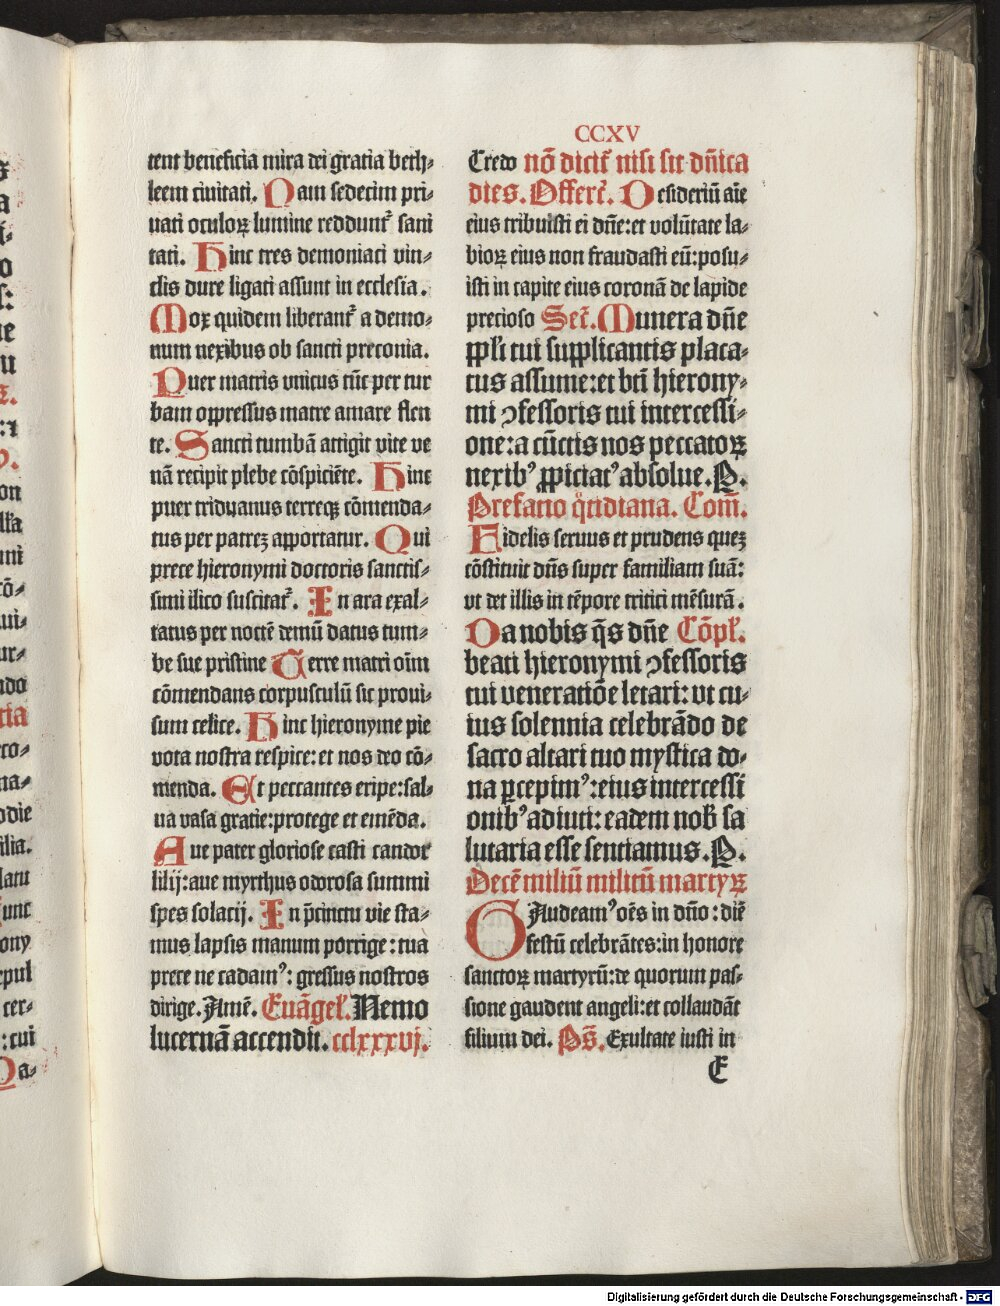 CCXV
tent beneficia mira dei gratia beth⸗
leem ciuitati. Nam sedecim pri⸗
uati oculoꝝ lumine reddunt᷑ sani
tati. Hinc tres demoniaci vin⸗
clis dure ligati assunt in ecclesia.
Mox quidem liberant᷑ a demo⸗
num nexibus ob sancti preconia.
Puer matris vnicus tūc per tur
bam oppressus matre amare flen
te. Sancti tumbā attigit vite ve
nā recipit plebe cōspiciēte. Hinc
puer triduanus terreqꝫ cōmenda⸗
tus per patreꝫ apportatur. Qui
prece hieronymi doctoris sanctis⸗
simi ilico suscitat᷑. In ara exal⸗
tatus per noctē demū datus tum⸗
be sue pristine Terre matri oīm
cōmendans corpusculū sic proui⸗
sum celice. Hinc hieronyme pie
vota nostra respice: et nos deo cō⸗
menda. Et peccantes eripe:sal⸗
ua vasa gratie:protege et emēda.
Aue pater gloriose casti candor
lilij:aue myrthus odorosa summi
spes solacij. In p̄cinctu vie sta⸗
mus lapsis manum porrige: tua
prece ne cadamꝰ: gressus nostros
dirige. Amē. Euāgeł. Nemo
lucernā accendit. cclxxxvj.
Credo nō dicit᷑ nisi sit dn̄ica
dies. Offert᷑. Desideriū aīe
eius tribuisti ei dn̄e:et volūtate la⸗
bioꝝ eius non fraudasti eū:posu⸗
isti in capite eius coronā de lapide
precioso Secr̄. Munera dn̄e
ppłi tui supplicantis placa⸗
tus assume:et bti hierony⸗
mi ꝯfessoris tui intercessi⸗
one:a cūctis nos peccatoꝝ
nexibꝰ ꝓpiciatꝰ absolue. P.
Prefatio q̊tidiana. Com̄.
Fidelis seruus et prudens queꝫ
cōstituit dn̄s super familiam suā:
vt det illis in tēpore tritici mēsurā.
Da nobis q̄s dn̄e Cōpł.
beati hieronymi ꝯfessoris
tui veneratiōe letari: vt cu⸗
ius solennia celebrādo de
sacro altari tuo mystica do⸗
na ꝑcepimꝰ:eius intercessi
onibꝰ adiuti: eadem nob̄ sa
lutaria esse sentiamus. P.
Decē miliū militū martyꝝ
GAudeamꝰ oēs in dn̄o: diē
festū celebrātes:in honore
sanctoꝝ martyrū:de quorum pas⸗
sione gaudent angeli:et collaudāt
filium dei. Ps̄. Exultate iusti in
E
Digitalisierung gefördert durch die Deutsche Forschungsgemeinschaft - DFG